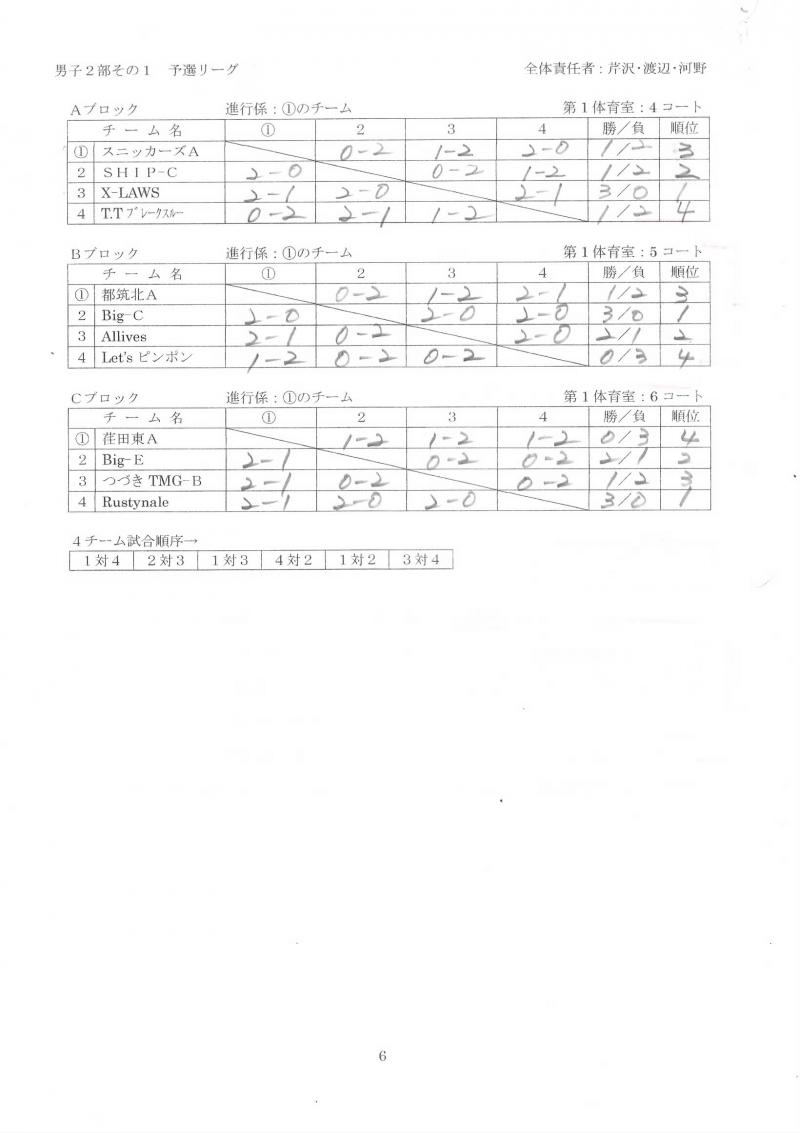 男子２部その１　予選リーグ　全体責任者：芹沢・渡辺・河野
Ａブロック　進行係：①のチーム　第１体育室：４コート
チ ー ム 名　①　２　３　４　勝／負　順位
①　スニッカーズＡ　0-2　1-2　2-0　1/2　3
２　ＳＨＩＰ-Ｃ　2-0　0-2　1-2　1/2　2
３　X-LAWS　2-1　2-0　2-1　3/0　1
４　T.Tﾌﾞﾚｰｸｽﾙｰ　0-2　2-1　1-2　1/2　4
Ｂブロック　進行係：①のチーム　第１体育室：５コート
チ ー ム 名　①　２　３　４　勝／負　順位
①　都筑北Ａ　0-2　1-2　2-1　1/2　3
２　Big-C　2-0　2-0　2-0　3/0　1
３　Allives　2-1　0-2　2-0　2/1　2
４　Let's ピンポン　1-2　0-2　0-2　0/3　4
Ｃブロック　進行係：①のチーム　第１体育室：６コート
チ ー ム 名　①　２　３　４　勝／負　順位
①　荏田東Ａ　1-2　1-2　1-2　0/3　4
２　Big-E　2-1　0-2　0-2　2/1　2
３　つづき TMG-B　2-1　0-2　0-2　1/2　3
４　Rustynale　2-1　2-0　2-0　3/0　1
４チーム試合順序→
１対４　２対３　１対３　４対２　１対２　３対４
6